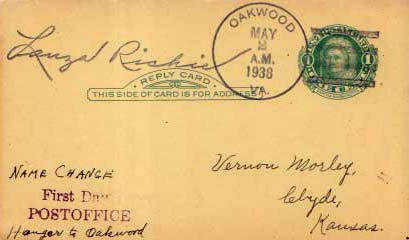 OAKWOOD
MAY
2
A.M.
1938
VA.
REPLY CARD
THIS SIDE OF CARD IS FOR ADDRESS
1 1
NAME CHANGE
First Day
POSTOFFICE
Hanger to Oakwood
Vernon Morley,
Clyde,
Kansas.